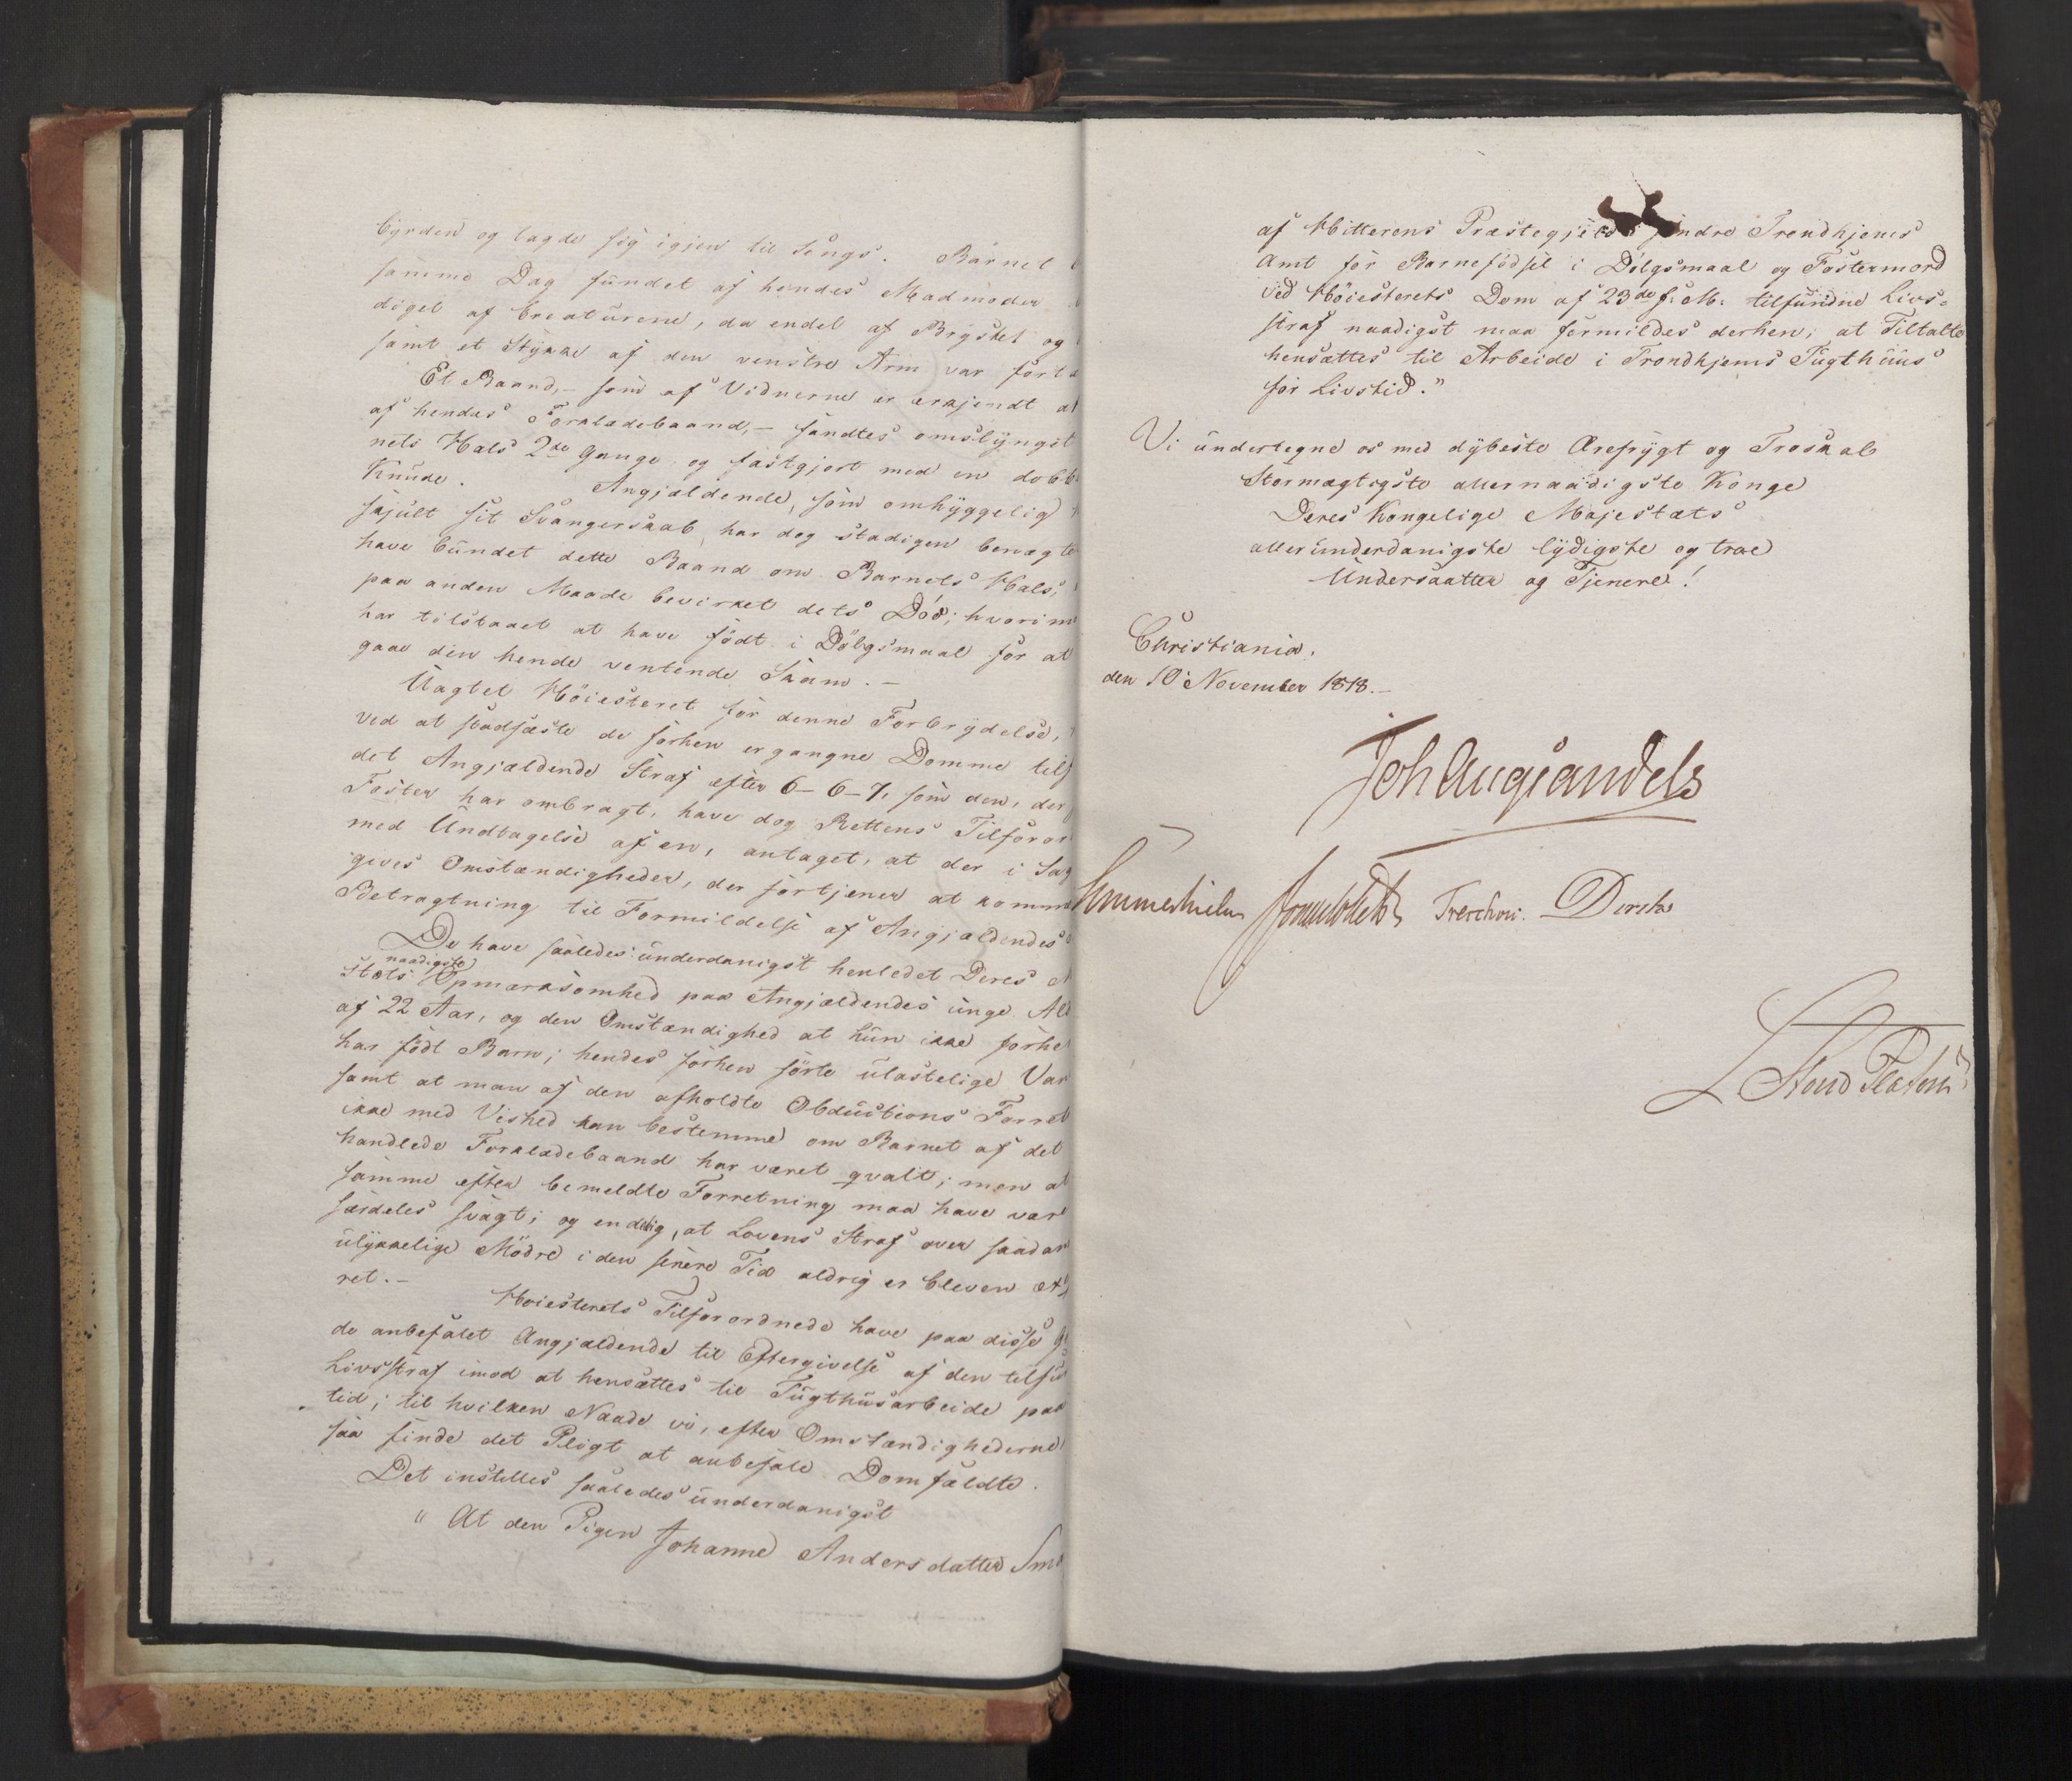 Byrden og lagde sig igjen til Sengs. Barnet
samme Dag fundet af hendes Madmoder
diget af Creaturene, da endel af Brystet og
samt et Stykke af den venstre Arm var fort
Et Baand, – som af Vidnerne er erkjendt at
af hendes Forklædebaand, – fandtes omslynget
nets Hals 2de Gange og fastgjort med en dobb
Knude. Angjældende, som omhyggelig
skjult sit Svangerskab, har dog stadigen benægte
have bundet dette Baand om Barnets Hals,
paa anden Maade bevirket dets Död; hvorim
har tilstaaet at have födt i Dölgsmaal for at
gaae den hende ventende Skam. –
Uagtet Höiesteret for denne Forbrydelse,
ved at stadfæste de forhen ergangne Domme tilf
det Angjældende Straf efter 6–6–7, som den, der
Foster har ombragt, have dog Rettens Tilforor
med Undtagelse af en, antaget, at der i Sag
gives Omstændigheder, der fortjener at komme
Betragtning til Formildelse af Angjældendes
De have saaledes underdanigst henledet Deres M
naadigste
stæts Opmærksomhed paa Angjældendes unge Ald
af 22 Aar, og den Omstændighed at hun ikke forhe
har födt Barn; hendes forhen förte ulastelige Van
samt at man af den afholdte Obductions Forret
ikke med Vished kan bestemme om Barnet af det
handlede Forklædebaand har været qvalt; men at
samme efter bemeldte Forretning maa have vær
særdeles svagt; og endelig, at Lovens Straf over saadan
ulykkelige Mödre i den senere Tid aldrig er bleven ex
ret. –
Höiesterets Tilforordnede have paa disse G
de anbefalet Angjældende til Eftergivelse af den tilfu
Livsstraf imod at hensættes til Tugthusarbeide paa
tid; til hvilken Naade vi, efter Omstændighederne
saa finde det Pligt at anbefale Domfældte.
Det instilles saaledes underdanigst
"At den Pigen Johanne Andersdatter Smö
af Hitterens Præstegjeld i söndre Trondhjems
Amt for Barnefödsel i Dölgsmaal og Fostermord
ved Höiesterets Dom af 23de f: M: tilfundne Livs=
straf naadigst maa formildes derhen, at Tiltalte
hensættes til Arbeide i Trondhjems Tugthuus
for Livstid."
Vi undertegne os med dybeste Ærefrygt og Troskab
Stormægtigste allernaadigste Konge
Deres Kongelige Majestæts
allerunderdanigste lydigste og troe
Undersaatter og Tjenere!
Christiania,
den 10 November 1818. –
Joh Aug Sandels
Hummerhielm Sommerfeldt Treschow. Diriks
L Stoud Platou